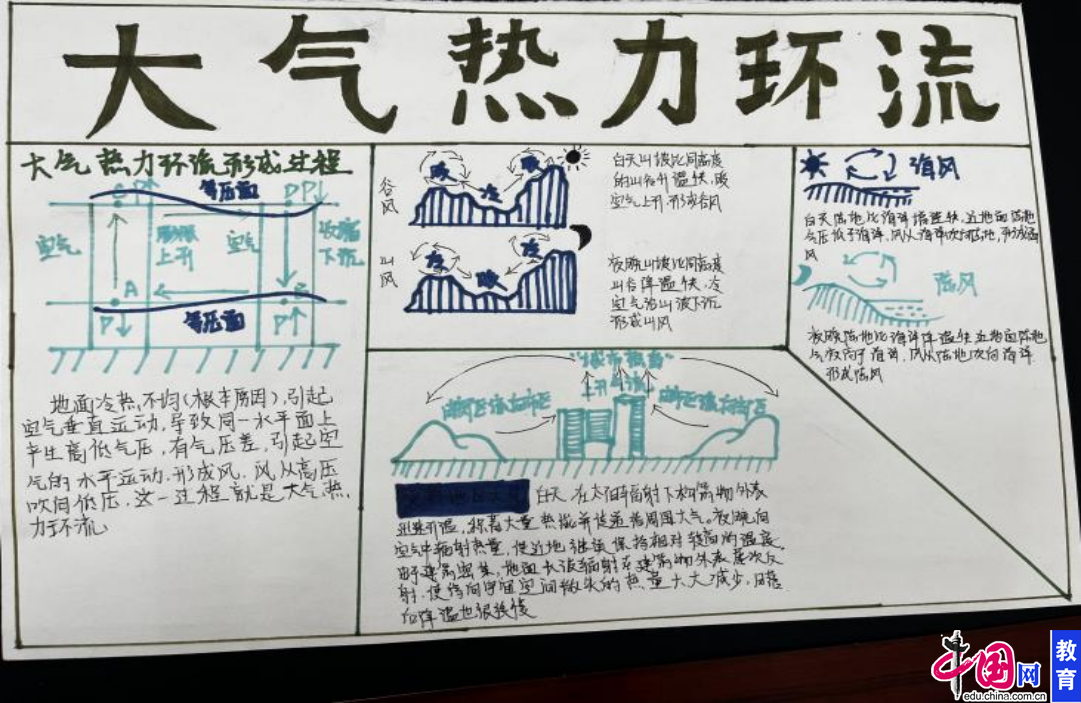 大气热力环流
大气热力环流形成过程
等压面
空气
膨胀
上升
空气
收缩
下沉
A
等压面
地面冷热不均(根本原因),引起
空气垂直运动,导致同一水平面上
产生高低气压,有气压差,引起空
气的水平运动,形成风,风从高压
吹向低压,这一过程就是大气热
力环流
谷风
暖
冷
暖
白天山坡比同高度
的山谷升温快,暖
空气上升,形成谷风
山风
冷
暖
冷
夜晚山坡比同高度
山谷降温快,冷
空气沿山坡下沉
形成山风
海风
白天陆地比海洋增温快,近地面陆地
气压低于海洋,风从海洋吹向陆地,形成海
风
陆风
夜晚陆地比海洋降温快近地面陆地
气压高于海洋,风从陆地吹向海洋
形成陆风
"城市热岛"
上升气流
白天,在太阳辐射下构筑物外表
迅速升温,积蓄大量热能并传递给周围大气。夜晚向
空气中辐射热量,使近地继续保持相对较高的温度
由于建筑密集,地面长波辐射在建筑物外表多次反
射,使得向宇宙空间散失的热量大大减少,日落
后降温也很缓慢
中国网
edu.china.com.cn
教育